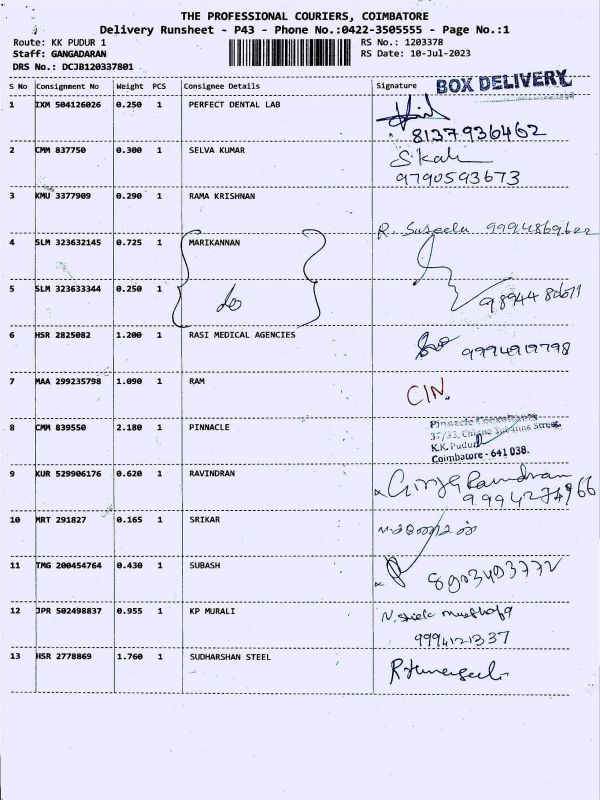 THE PROFESSIONAL COURIERS, COIMBATORE
Delivery Runsheet - P43 - Phone No.:0422-3505555 - Page No.:1
Route: KK PUDUR 1 RS No.: 1203378
Staff: GANGADARAN RS Date: 10-Jul-2023
DRS No.: DCJB120337801
S No Consignment No Weight PCS Consignee Details Signature BOX DELIVERY
1 IXM 504126026 0.250 1 PERFECT DENTAL LAB
8137936462
2 CMM 837750 0.300 1 SELVA KUMAR
9790593673
3 KMU 3377909 0.290 1 RAMA KRISHNAN
R. Suseela 9994869622
4 SLM 323632145 0.725 1 MARIKANNAN
5 SLM 323633344 0.250 1 do
6 HSR 2825082 1.200 1 RASI MEDICAL AGENCIES
9994919798
7 MAA 299235798 1.090 1 RAM CIN.
8 CMM 839550 2.180 1 PINNACLE Pinnacle
37/33, Street,
K.K. Pudur
Coimbatore - 641 038.
9 KUR 529906176 0.620 1 RAVINDRAN
9994274966
10 MRT 291827 0.165 1 SRIKAR
11 TMG 200454764 0.430 1 SUBASH
8903403772
12 JPR 502498837 0.955 1 KP MURALI
9994121337
13 HSR 2778869 1.760 1 SUDHARSHAN STEEL